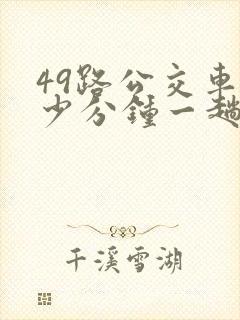 49路公交车
少分锺一趟
千溪雪湖